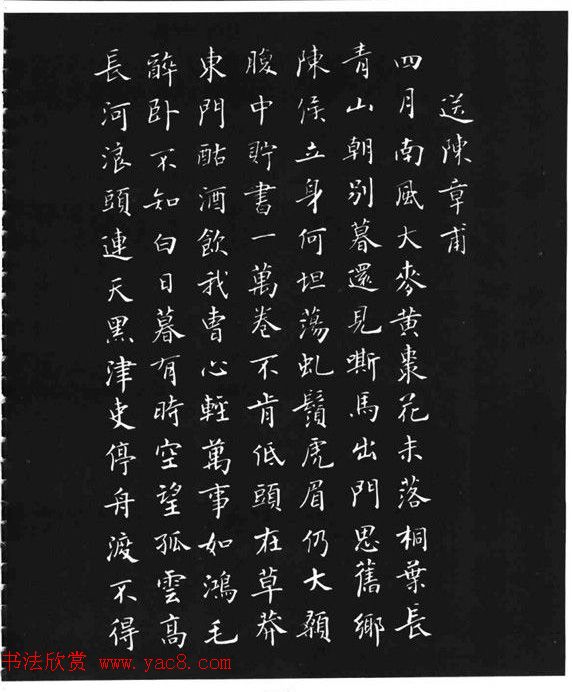 送陳章甫
四月南風大麥黃棗花未落桐葉長
青山朝別暮還見嘶馬出門思舊鄉
陳侯立身何坦蕩虬鬚虎眉仍大顙
腹中貯書一萬卷不肯低頭在草莽
東門酤酒飲我曹心輕萬事如鴻毛
醉卧不知白日暮有時空望孤雲高
長河浪頭連天黑津吏停舟渡不得
书法欣赏 www.yac8.com